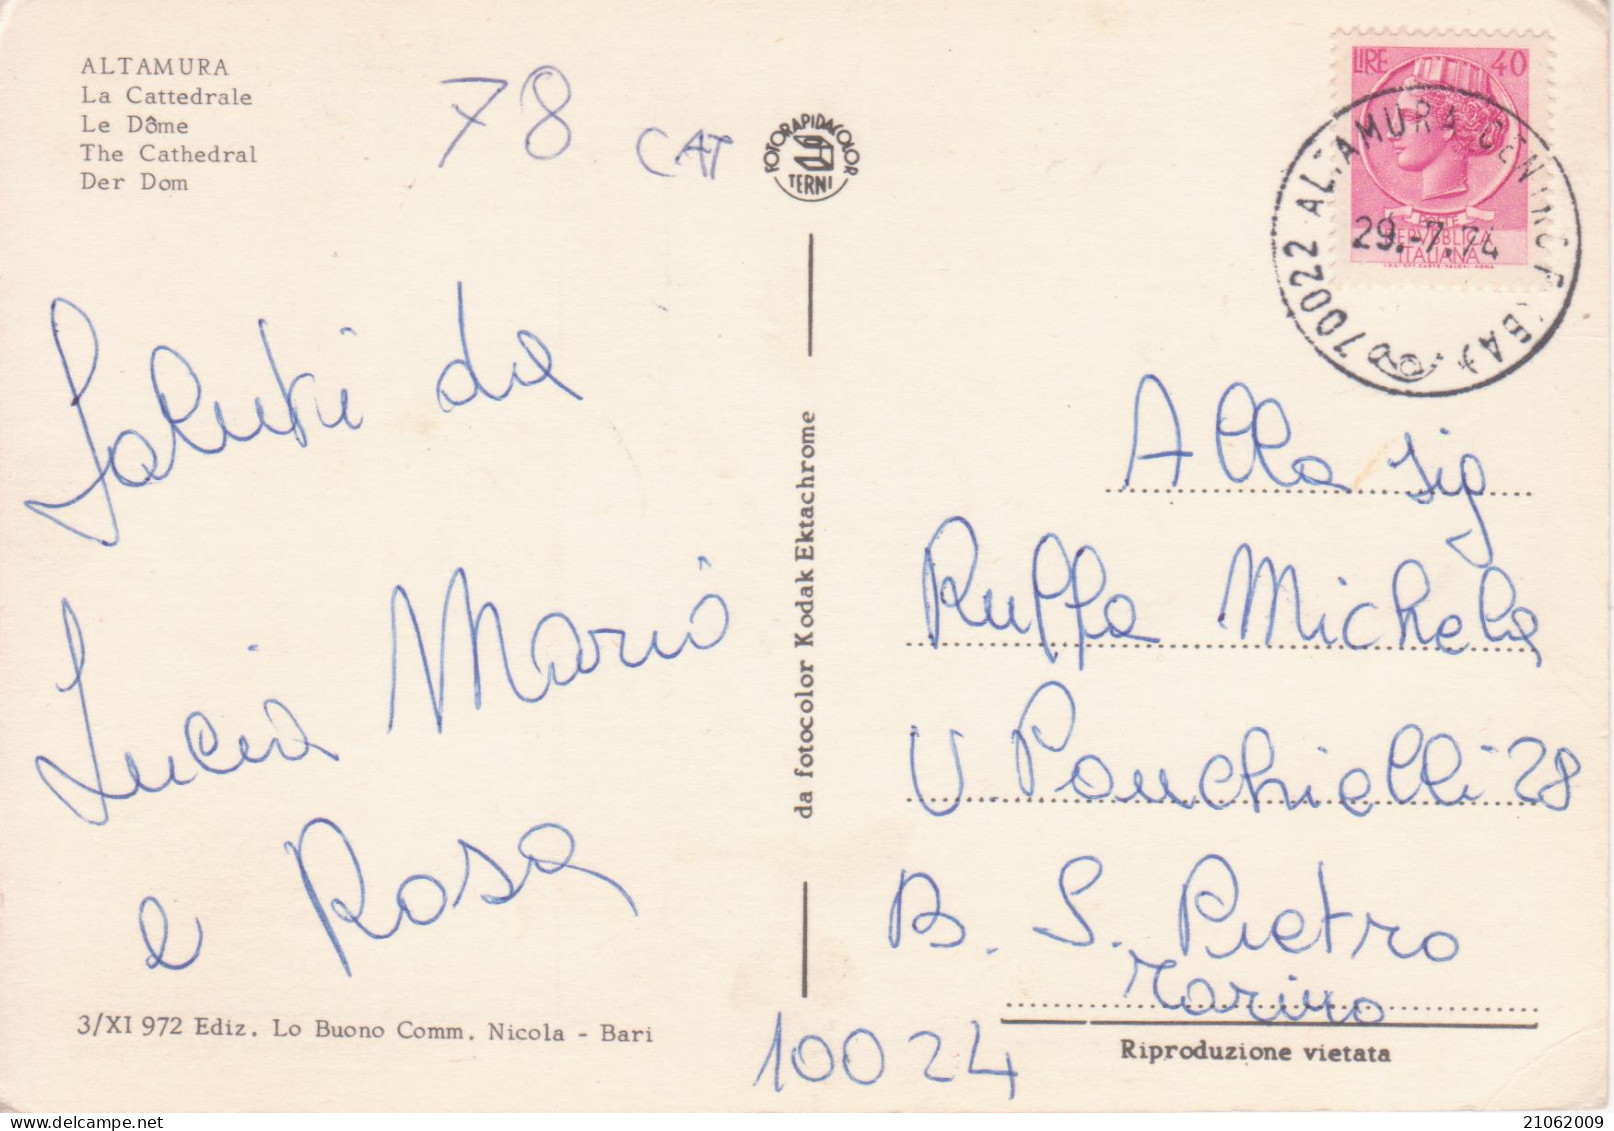 ALTAMURA
La Cattedrale
Le Dôme
The Cathedral
Der Dom
78
CAT
FOTORAPIDACOLOR
TERNI
LIRE 40
POSTE
REPVBBLICA
ITALIANA
70022 ALTAMURA CENTRO (BA)
29.-7.74
Saluti da
Lucia Mario
e Rosa
da fotocolor Kodak Ektachrome
Alla Sig
Ruffa Michela
V. Ponchielli 28
B. S. Pietro
Torino
10024
3/XI 972 Ediz. Lo Buono Comm. Nicola - Bari
Riproduzione vietata
21062009